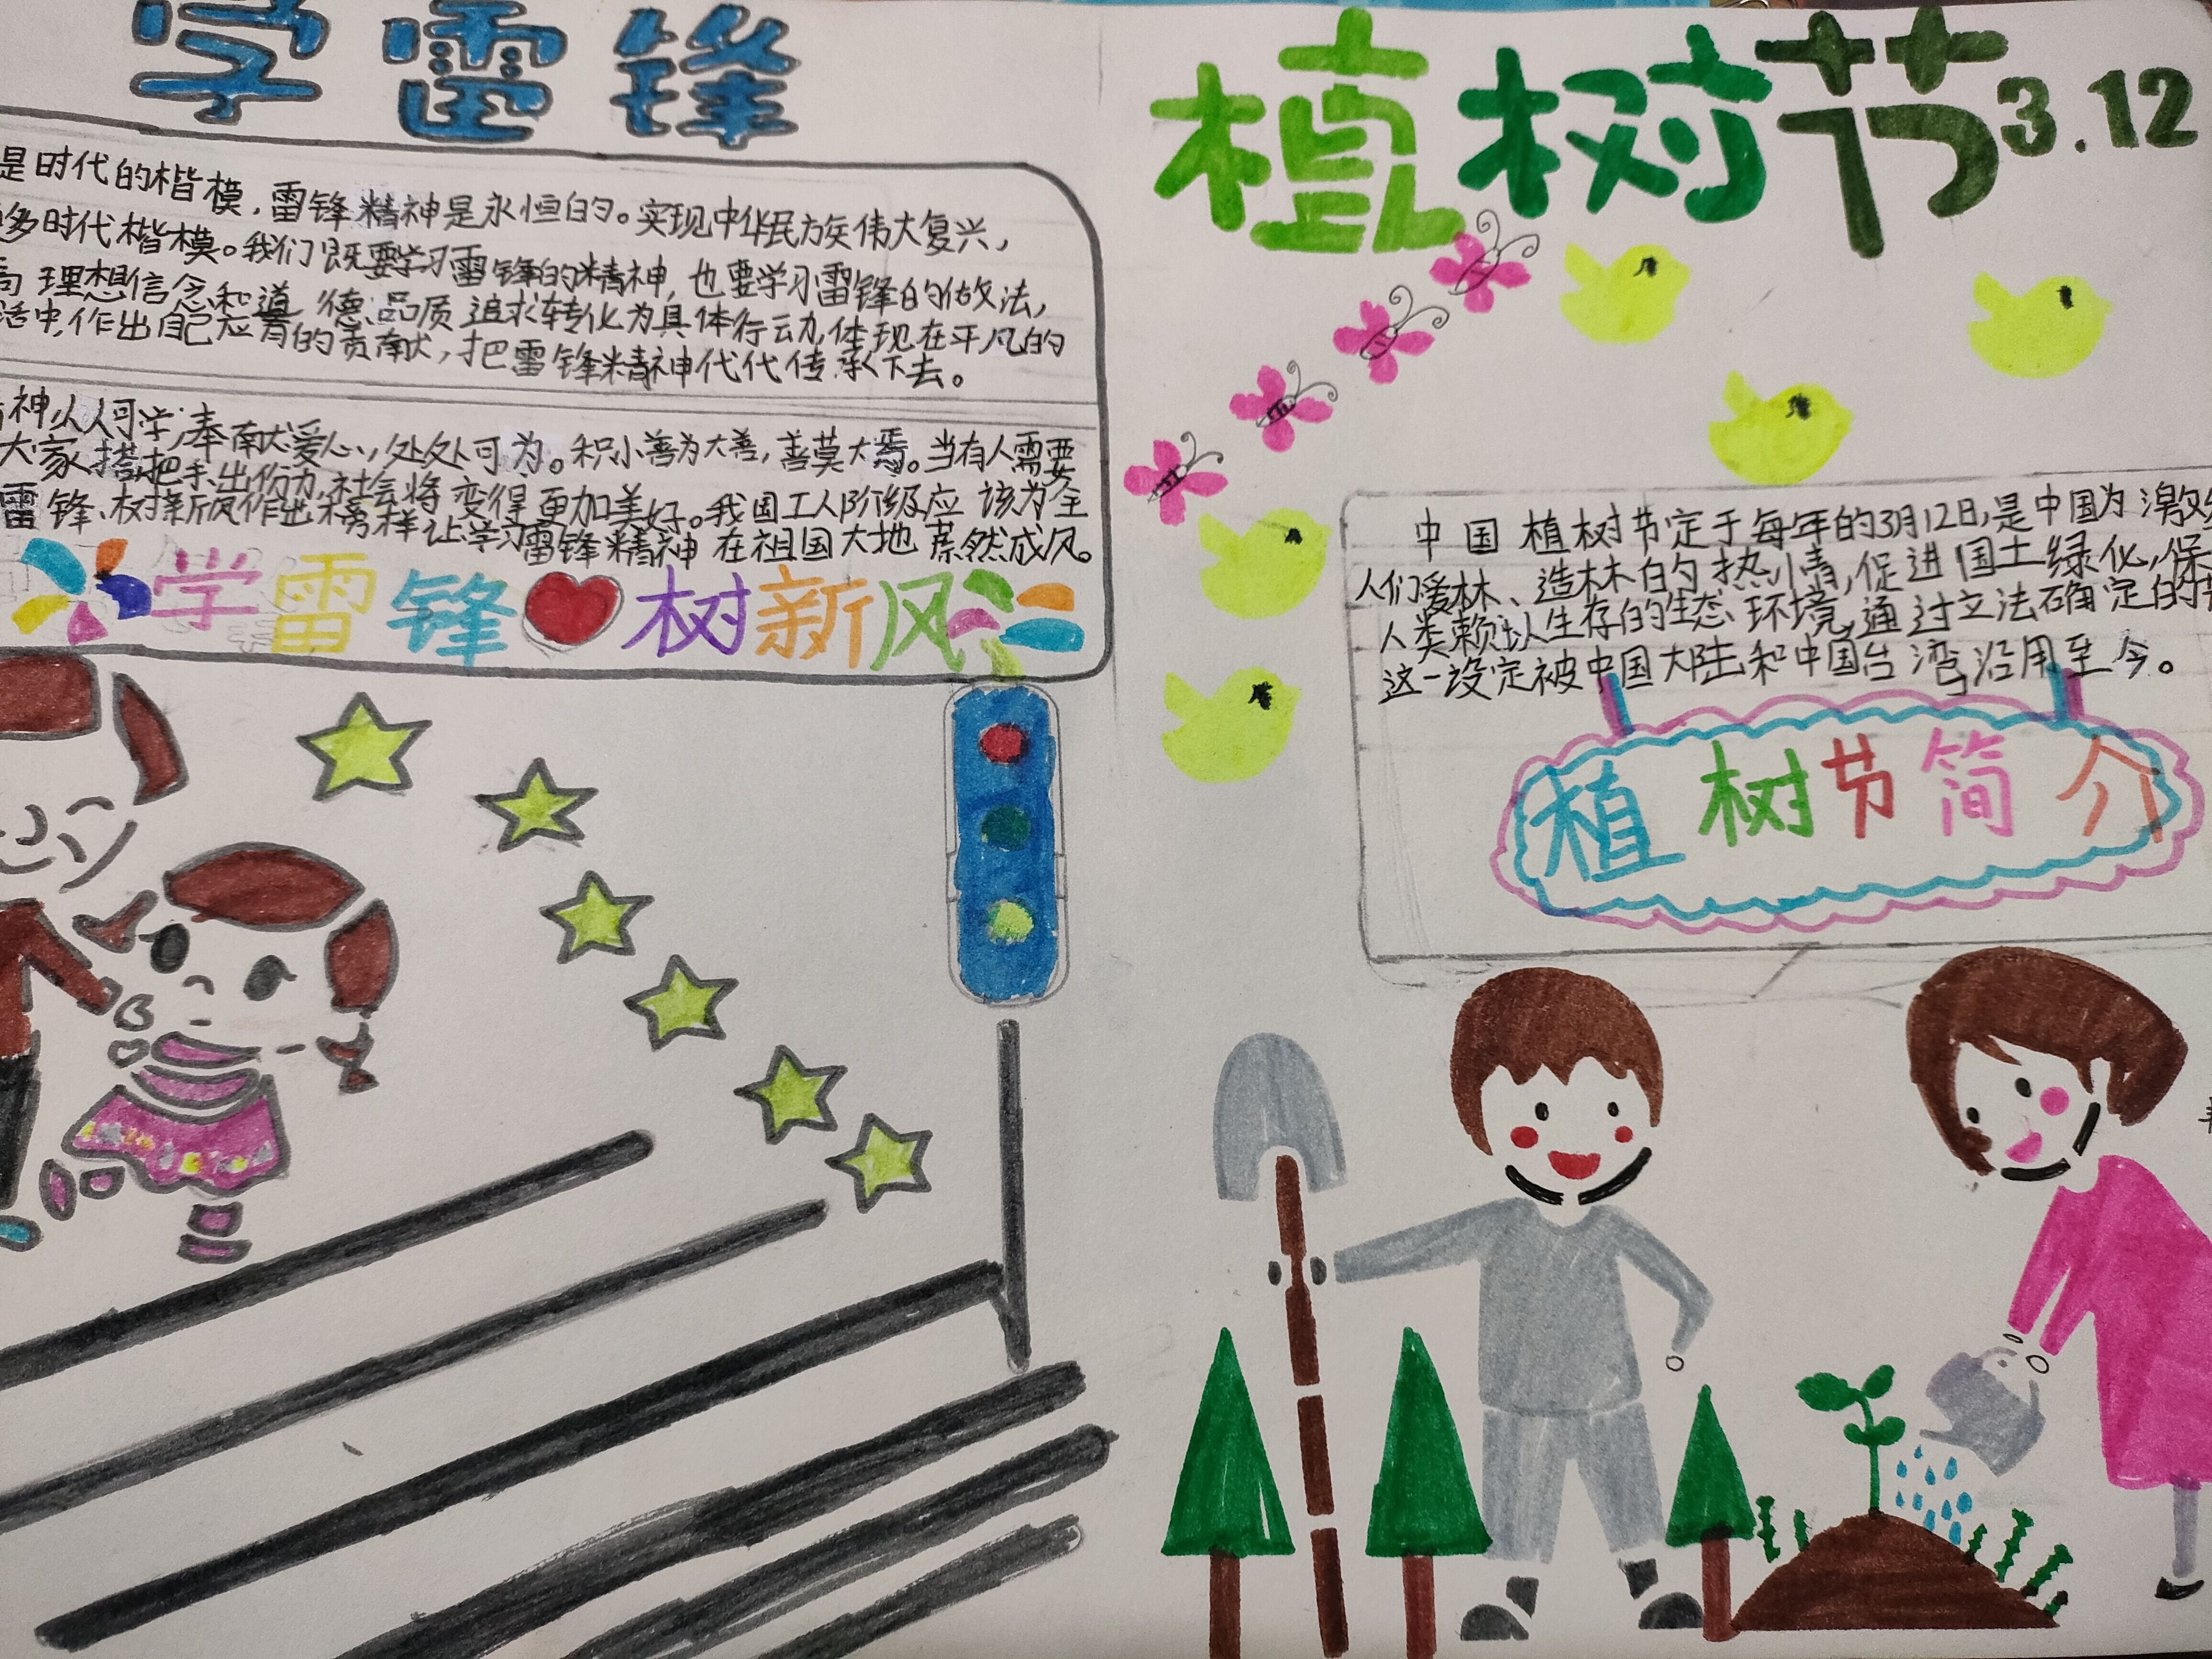 学雷锋
是时代的楷模，雷锋精神是永恒的。实现中华民族伟大复兴，
多时代楷模。我们既要学习雷锋的精神，也要学习雷锋的做法，
理想信念和道德品质追求转化为具体行动，体现在平凡的
活中，作出自己应有的贡献，把雷锋精神代代传承下去。
神，人人可学；奉献爱心，处处可为。积小善为大善，善莫大焉。当有人需要
大家搭把手、出份力，社会将变得更加美好。我国工人阶级应该为全
雷锋、树新风作出榜样，让学习雷锋精神在祖国大地蔚然成风。
学雷锋树新风
植树节3.12
中国植树节定于每年的3月12日，是中国为激发
人们爱林、造林的热情，促进国土绿化，保
人类赖以生存的生态环境，通过立法确定的节
这一设定被中国大陆和中国台湾沿用至今。
植树节简介